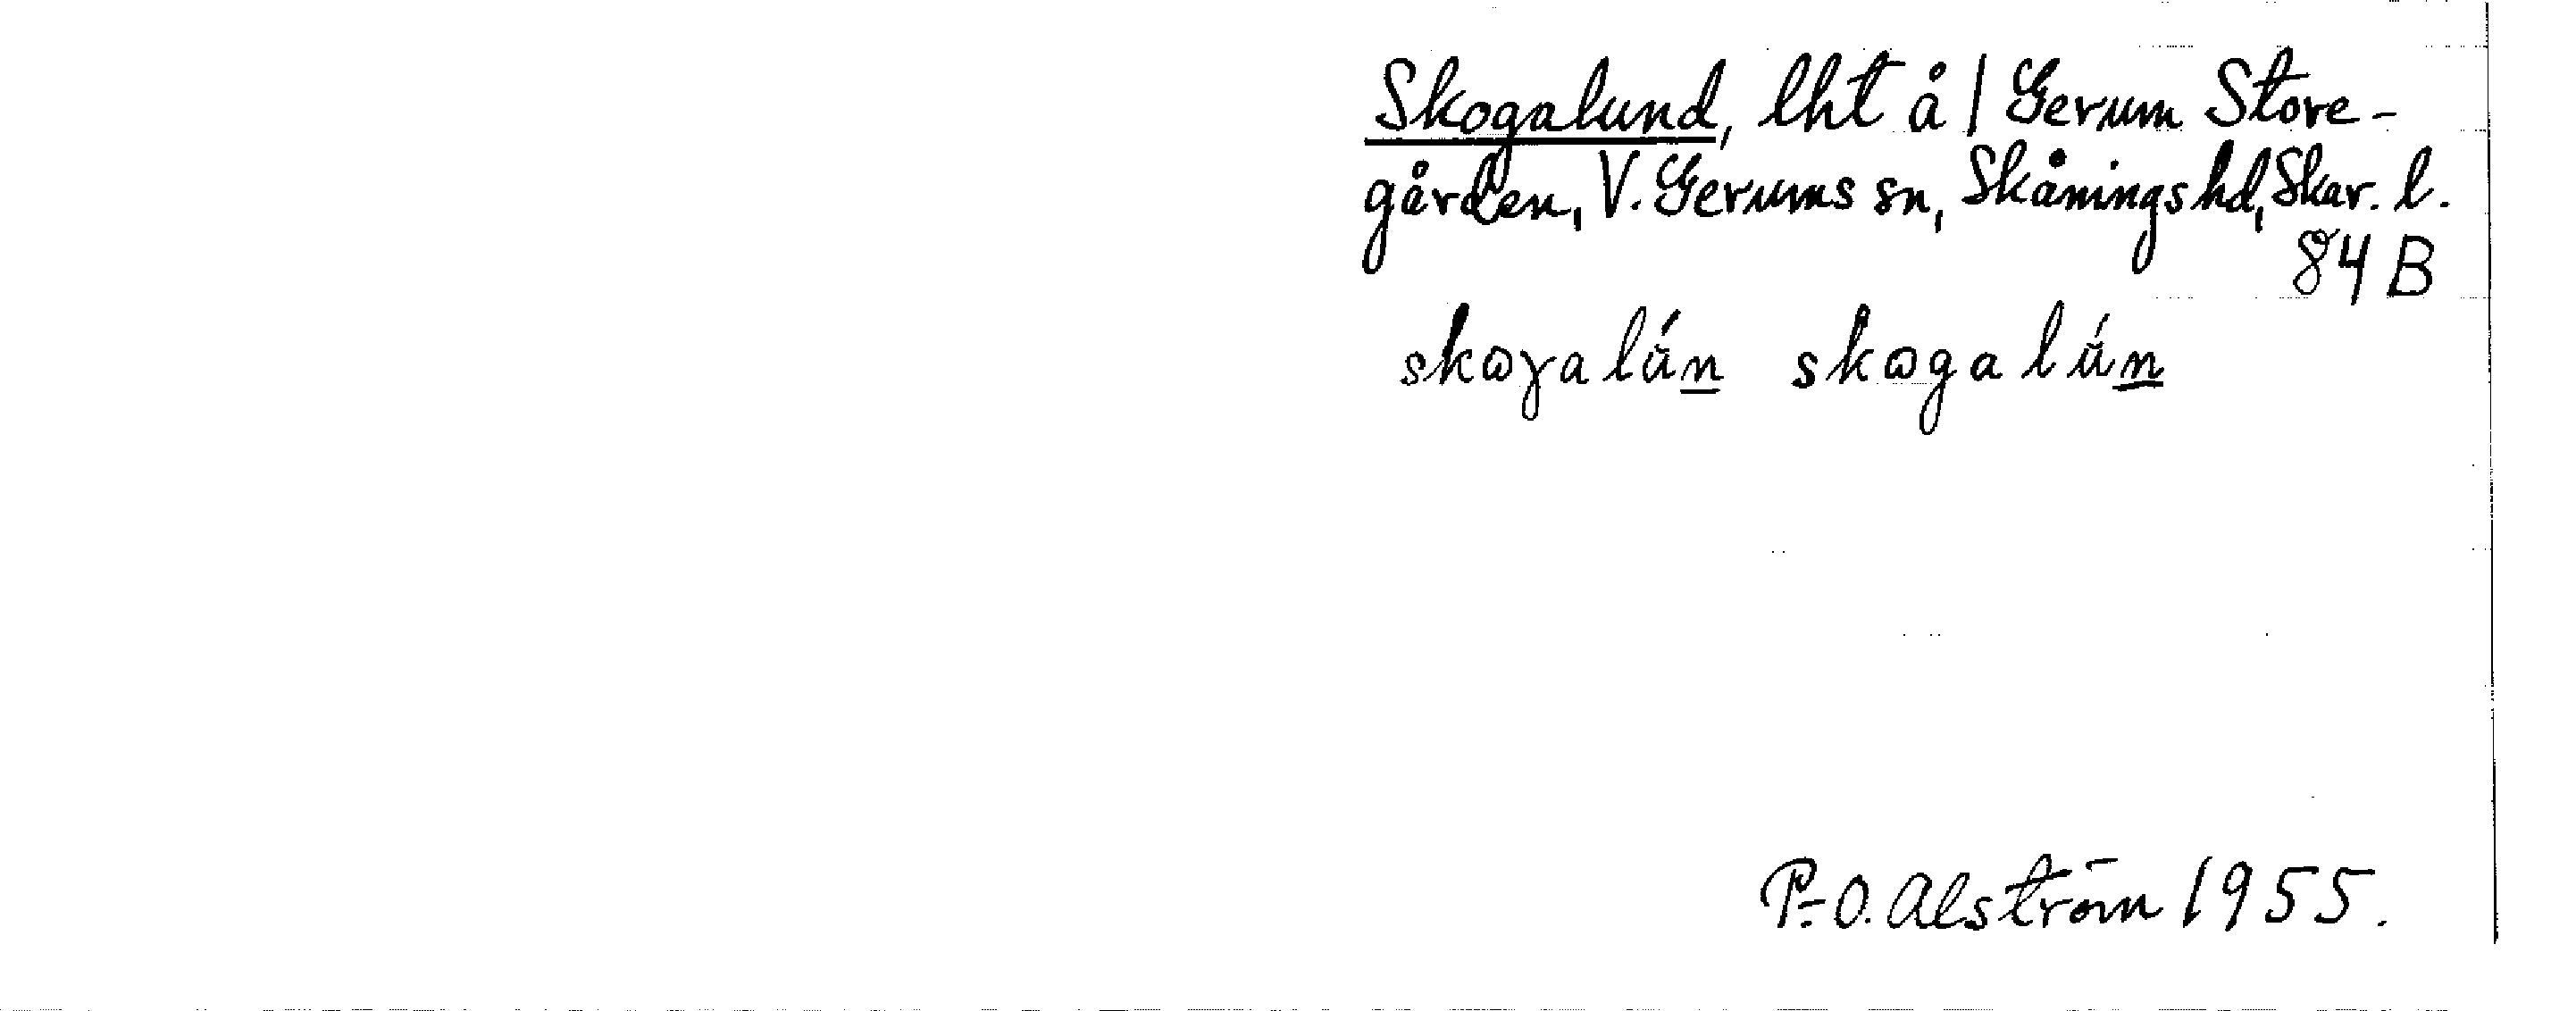 Skogalund, lht å / Gerum Store-
gården, V. Gerums sn, Skånings hd, Skar. l.
84 B
skɷɣalún skɷgalún
P.-O. Alström 1955.